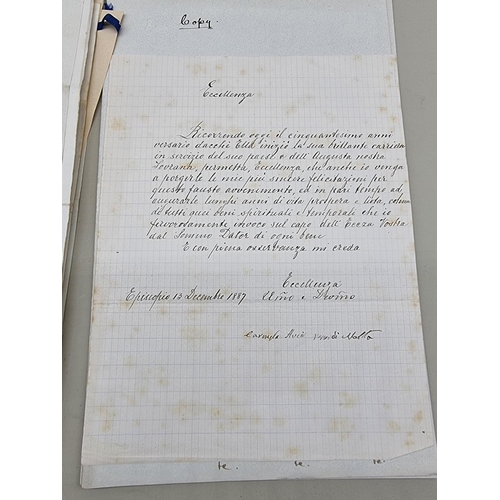 Copy.
Eccellenza
Ricorrendo oggi il cinquantesimo anni
versario dacchè Ella iniziò la sua brillante carriera
in servizio del suo paese e dell'Augusta nostra
Sovrana, permetta, Eccellenza, che anche io venga
a porgerle le mie più sincere felicitazioni per
questo fausto avvenimento, ed in pari tempo ad
augurarle lunghi anni di vita prospera e lieta, colma
di tutti quei beni spirituali e temporali che io
fervorosamente invoco sul capo dell'Eccza Vostra
dal Sommo Dator di ogni bene
E con piena osservanza mi creda
Eccellenza
Episcopio 13 Decembre 1887 Umo e Devmo
Carmelo Vdi Malta
te. te. te.